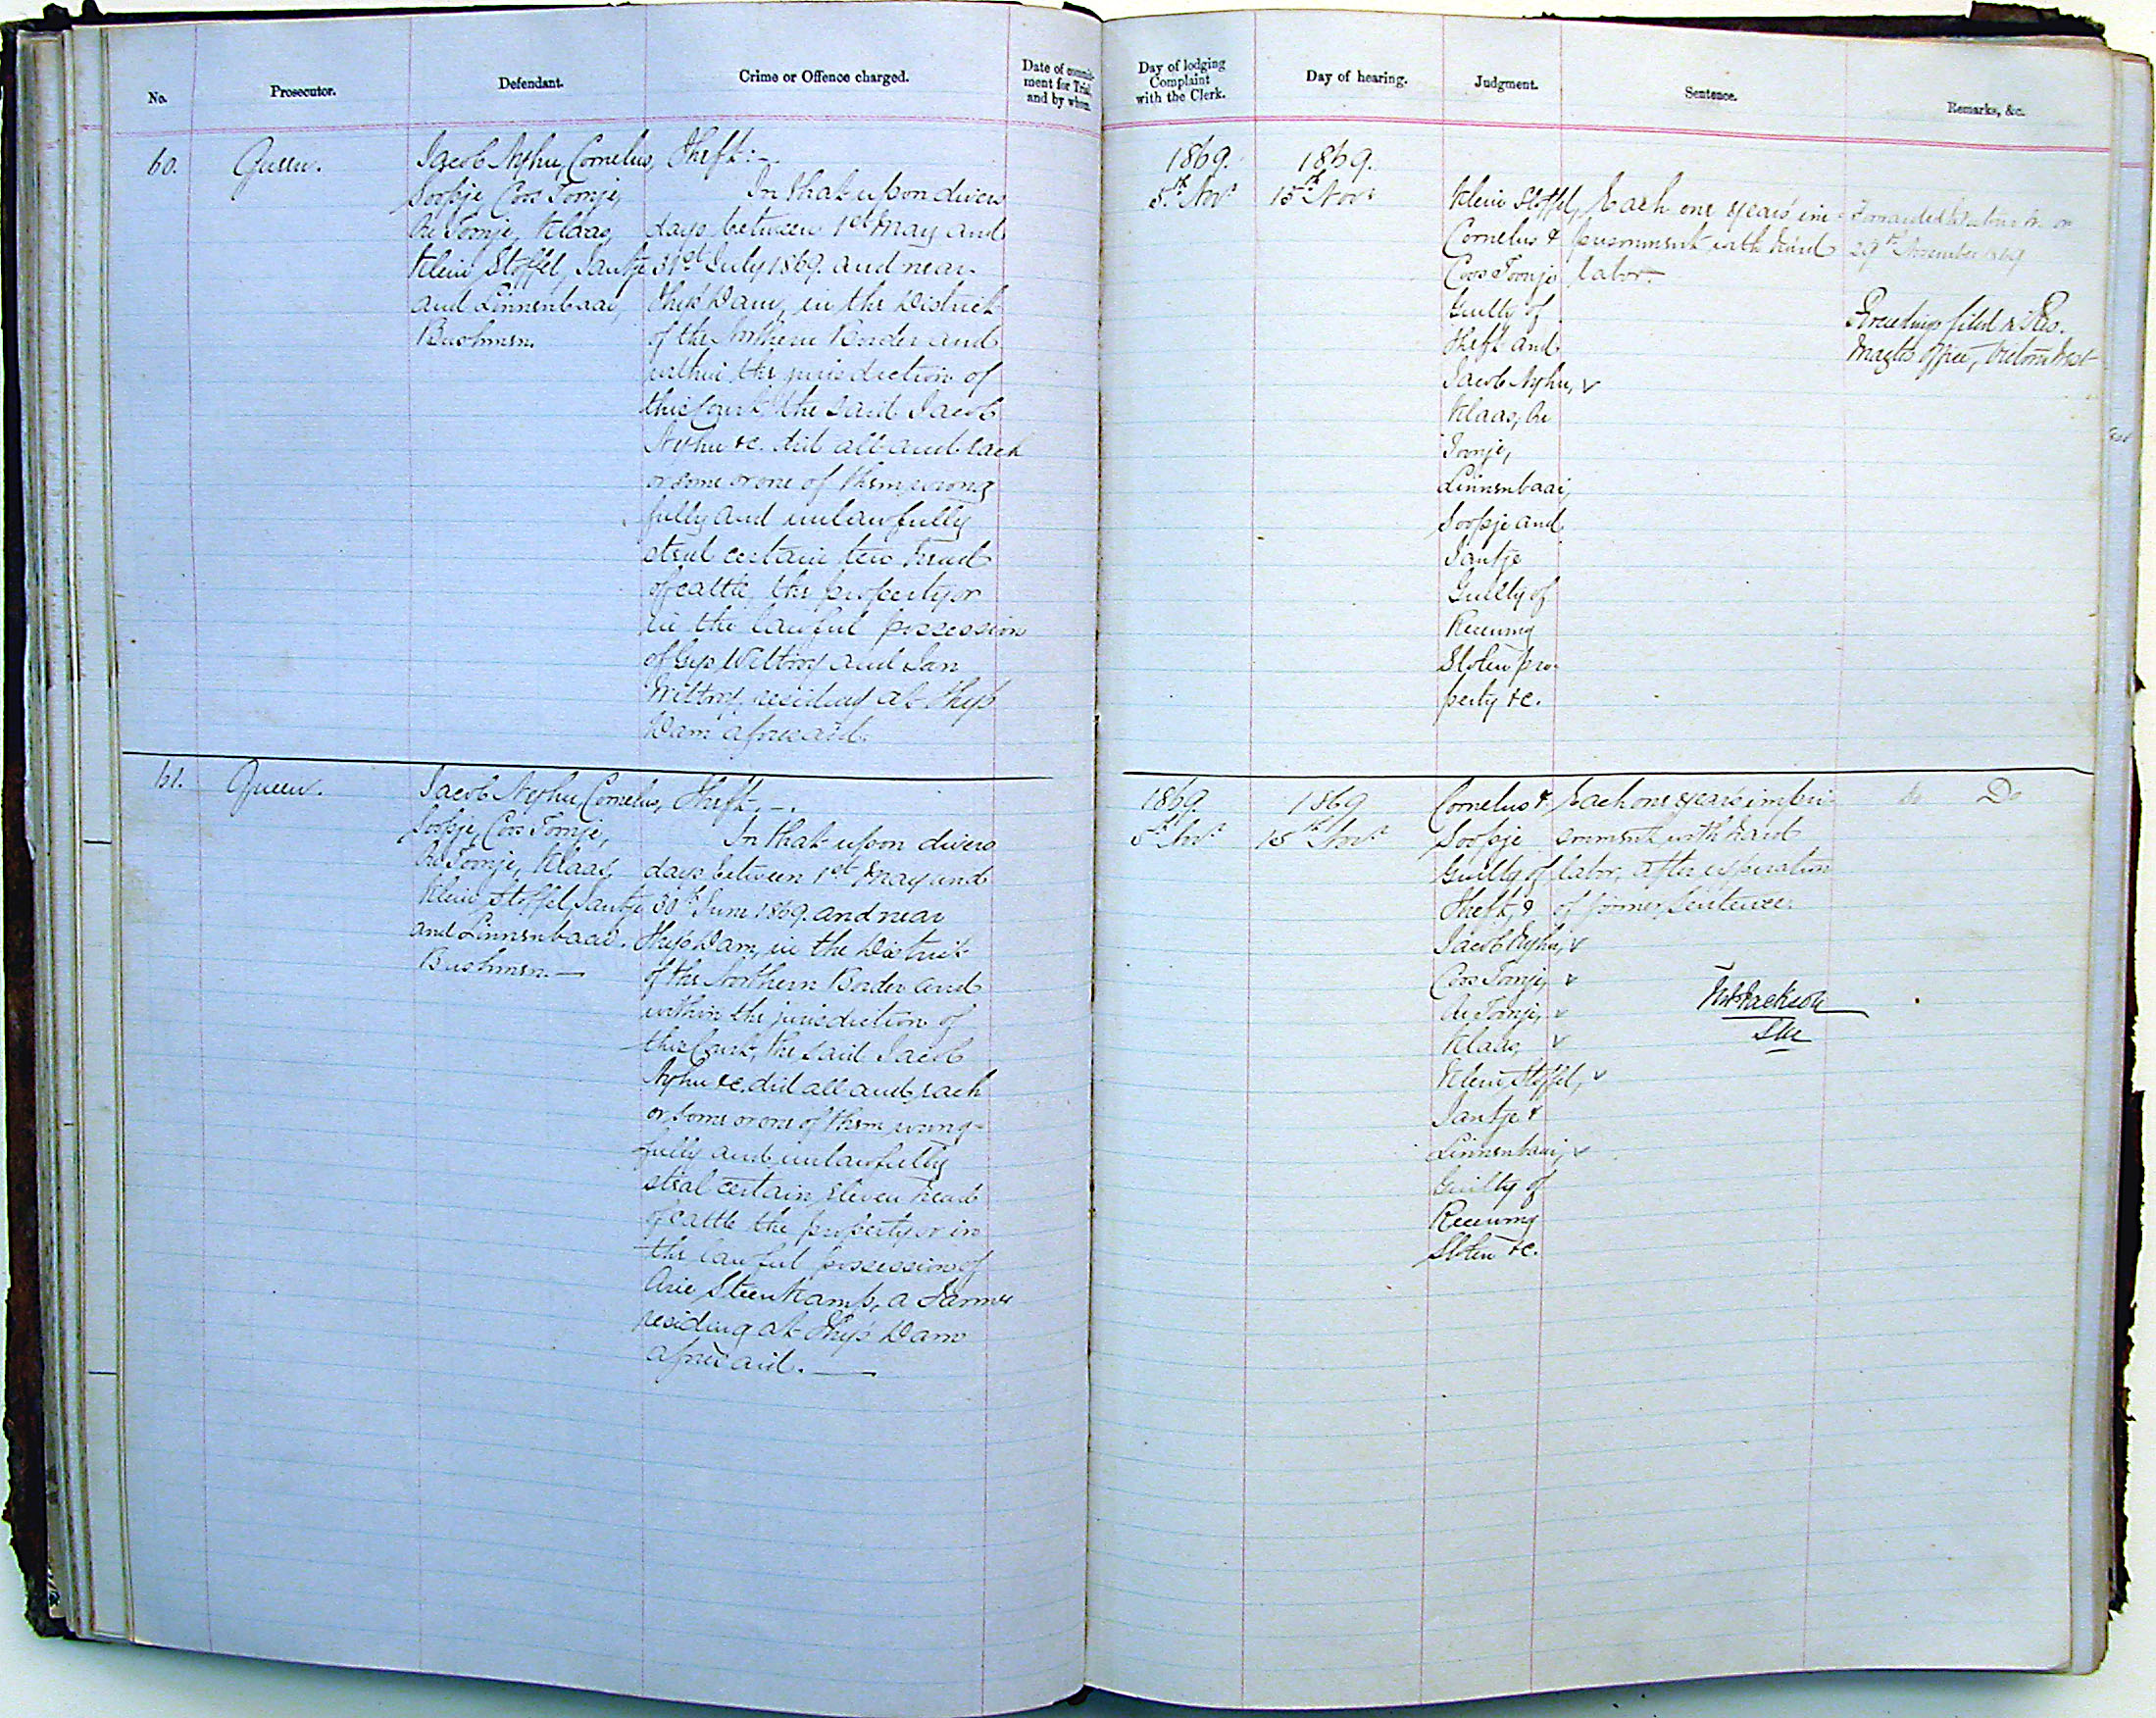 No.
Prosecutor.
Defendant.
Crime or Offence charged.
Date of commit-
ment for Trial
and by whom.
Day of lodging
Complaint
with the Clerk.
Day of hearing.
Judgment.
Sentence.
Remarks, &c.
60.
Queen.
Jacob Nephu, Cornelus,
Soopje, Coos Toonje,
Ari Toonje, Klaas,
Klein Stoffel, Jantje
and Linnenbaai,
Bushmen.
Theft:-
In that upon divers
days between 1st May and
31st July 1869. and near
Thys' Dam, in the District
of the Northern Border and
within the jurisdiction of
this Court, the said Jacob
Nephu &c. did all and each
or some or one of them wrong
fully and unlawfully
steal certain two head
of cattle, the property or
in the lawful possession
of Gys and Jan
residing at Thys
Dam aforesaid.
1869.
5th Novr
1869.
15th Novr
Klein Stoffel,
Cornelus &
Coos Toonje
Guilty of
theft and
Jacob Nephu, v
Klaas, Ari
Toonje,
Linnenbaai,
Soopje and
Jantje
Guilty of
Receiving
Stolen pro-
perty &c.
Each one year's im-
prisonment with hard
labor.
Forwarded to on
29th November 1869
Proceedings filed in Res.
Magts Office, Victoria West
61.
Queen.
Jacob Nephu, Cornelus,
Soopje, Coos Toonje,
Ari Toonje, Klaas,
Klein Stoffel, Jantje
and Linnenbaai.
Bushmen.—
Theft.-.
In that upon divers
days between 1st May and
30th June 1869. and near
Thys' Dam, in the District
of the Northern Border and
within the jurisdiction of
this Court, the said Jacob
Nephu &c. did all and each
or some or one of them wrong-
fully and unlawfully
steal certain eleven head
of cattle the property or in
the lawful possession of
Arie Steenkamp, a Farmer
residing at Thys' Dam
aforesaid.—
1869
5th Novr
1869
15th Novr
Cornelus &
Soopje
Guilty of
Theft, &
Jacob Nephu, v
Coos Toonje, v
Ari Toonje, v
Klaas, v
Klein Stoffel, v
Jantje &
Linnenbaai, v
Guilty of
Receiving
Stolen &c.
Each one year's impri-
sonment with hard
labor, after expiration
of former Sentence.
Jackson
Do Do